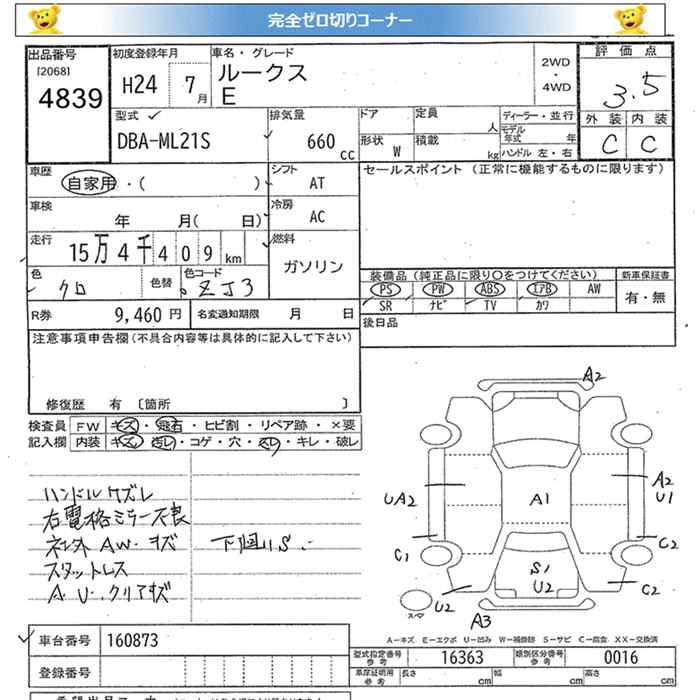 完全ゼロ切りコーナー
出品番号 初度登録年月 車名・グレード 2WD・4WD 評価点
[2068] 4839 H24 7月 ルークス E 3.5
外装 内装
C C
型式 排気量 ドア 定員 人 ディーラー・並行
DBA-ML21S 660cc 形状 W 積載 kg モデル年式 年 ハンドル 左・右
車歴 自家用・( ) シフト AT セールスポイント (正常に機能するものに限ります)
車検 年 月( 日) 冷房 AC
走行 15万4千409km 燃料 ガソリン
装備品(純正品に限り○をつけてください) 新車保証書
色 クロ 色替 色コード ZJ3 PS PW ABS エアB AW 有・無
SR ナビ TV カワ
R券 9,460円 名変通知期限 月 日 後日品
注意事項申告欄(不具合内容等は具体的に記入して下さい)
修復歴 有 〔箇所 〕
検査員 FW キズ・飛石・ヒビ割・リペア跡・×要
記入欄 内装 キズ・汚レ・コゲ・穴・スレ・キレ・破レ
ハンドルケズレ
右電格ミラー不良
社外AW・キズ 下回りS
スタットレス
A.U.クリアキズ
A2
UA2 A1 A2 U1
C1 C2
S1 U2 C2
スペア U2 A3
A-キズ E-エクボ U-凹み W-補修跡 S-サビ C-腐食 XX-交換済
車台番号 160873 型式指定番号 参考 16363 類別区分番号 参考 0016
登録番号 車庫証明用 参考 長さ cm 幅 cm 高さ cm